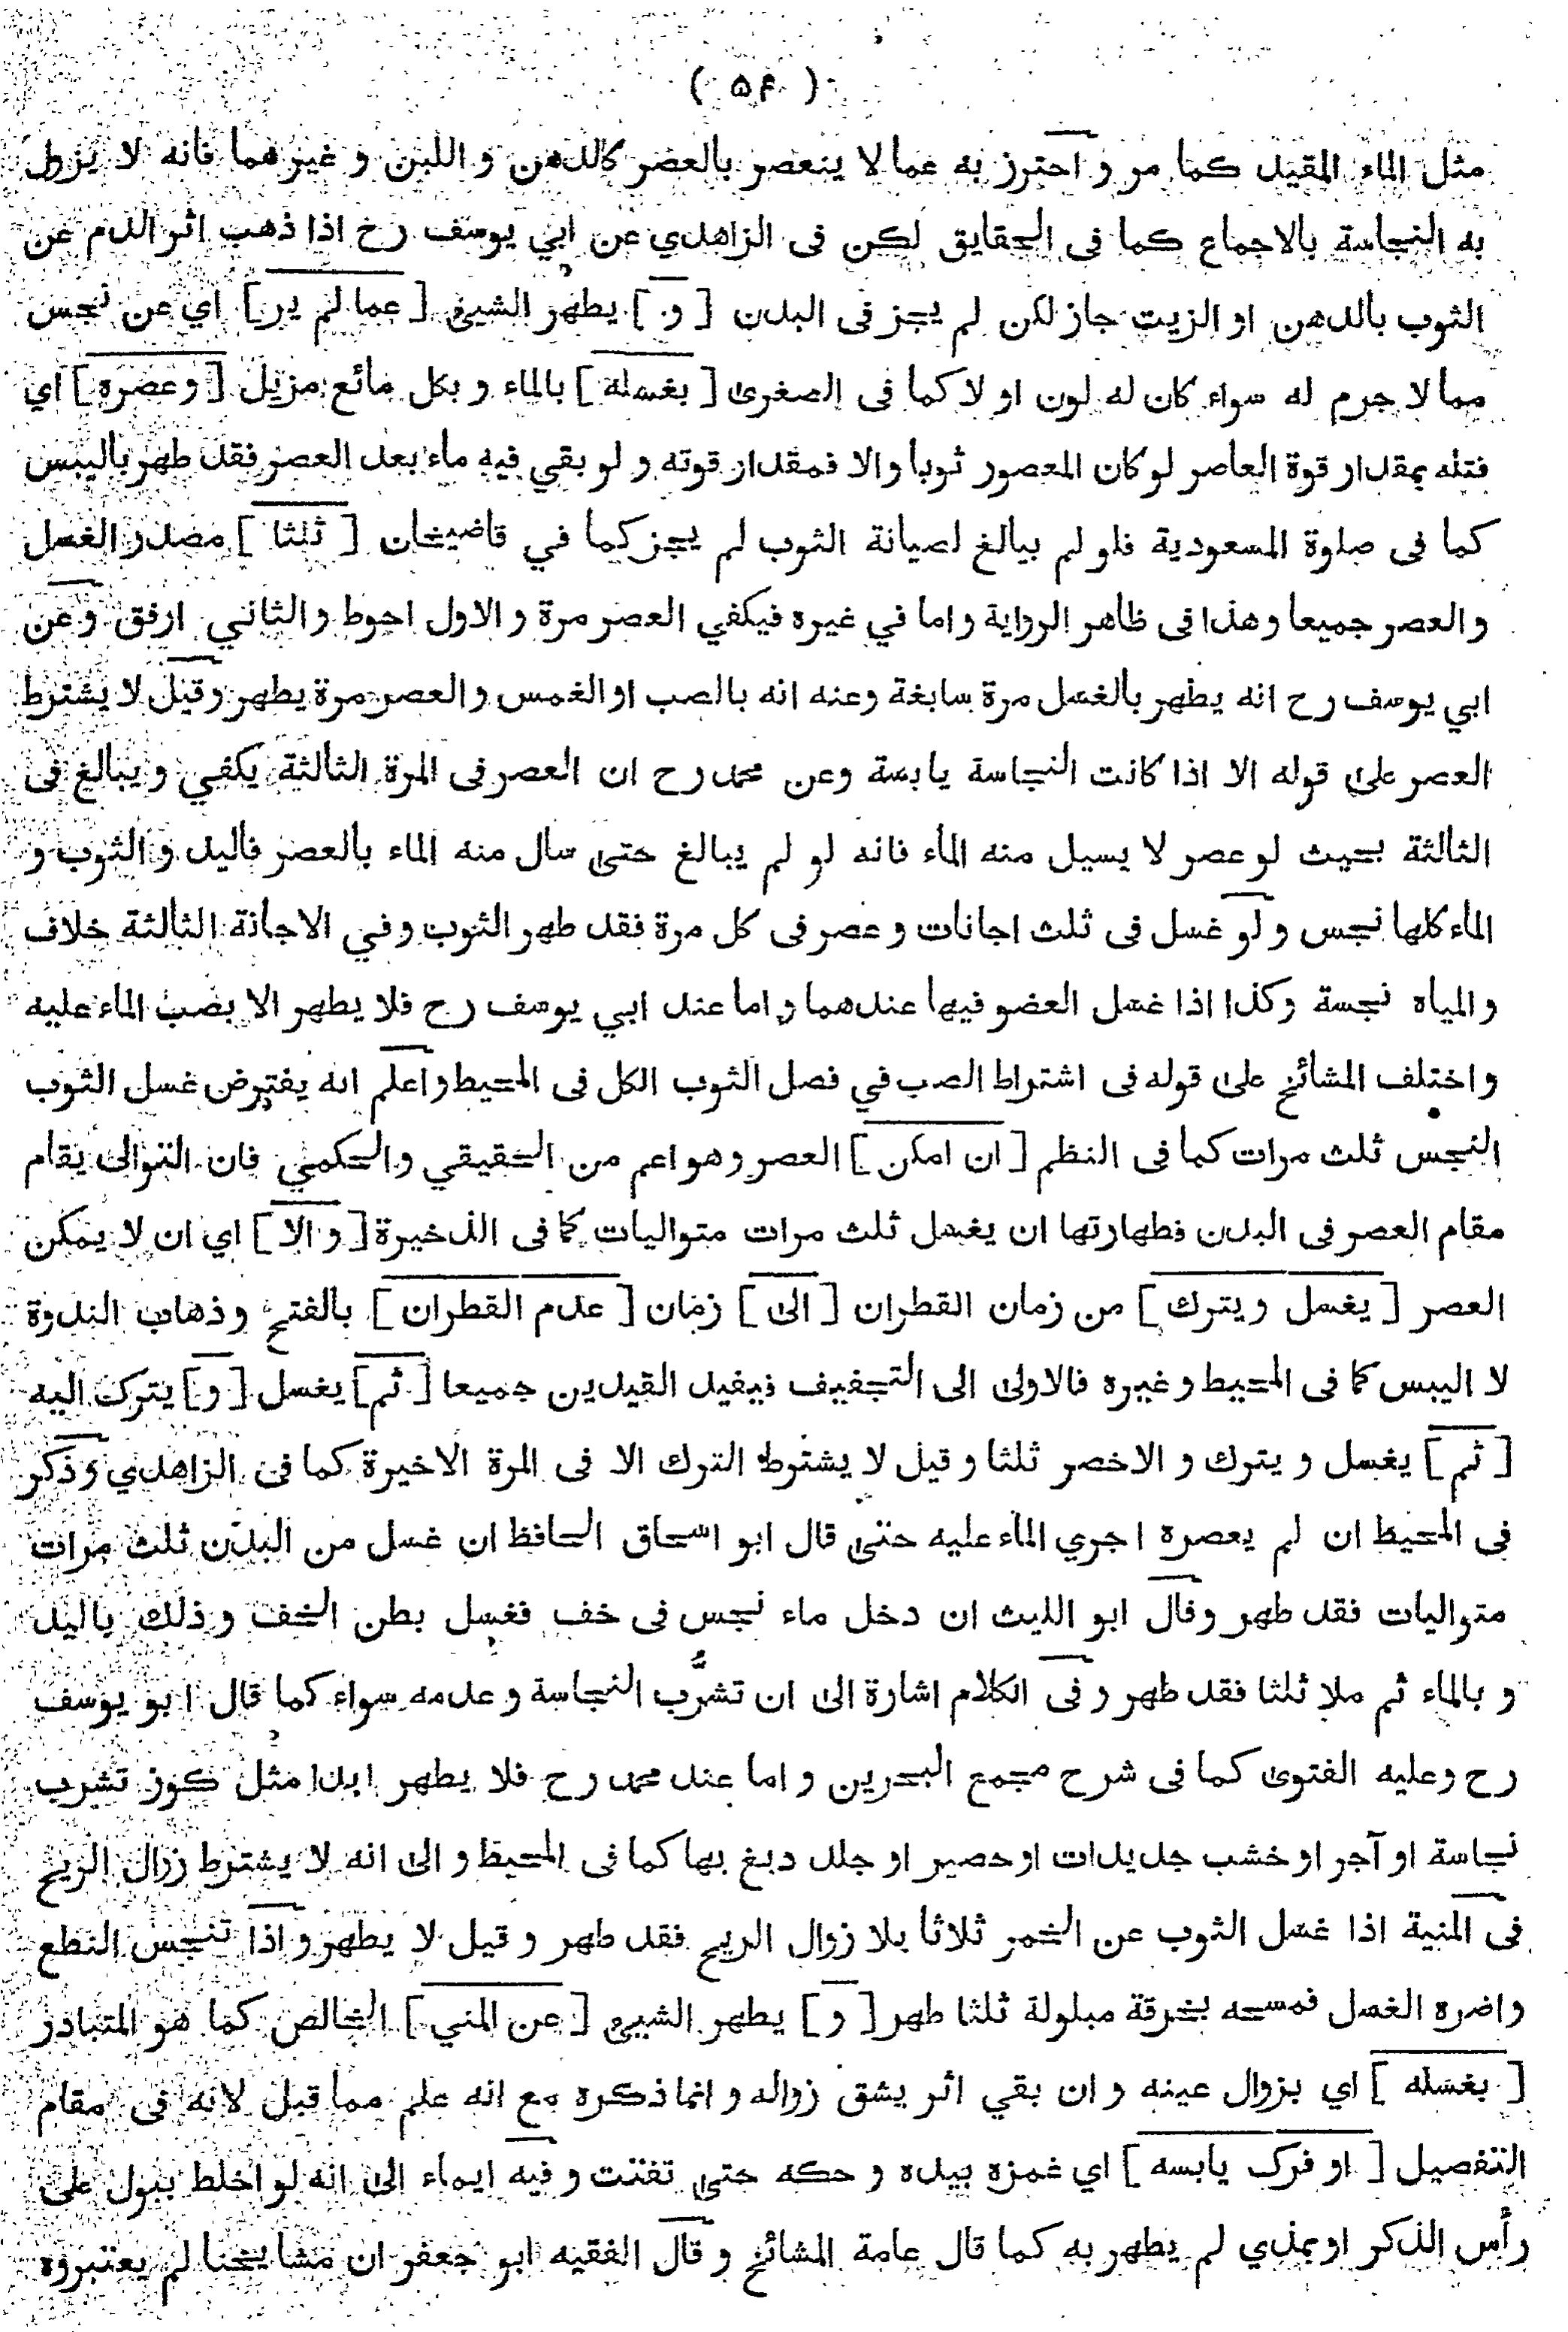 ( ۵۶ )
مثل الماء المقيد كما مر و احترز به عما لا ينعصر بالعصر كالدهن و اللبن و غيرهما فانه لا يزول
به النجاسة بالاجماع كما فى الحقايق لكن فى الزاهدي عن ابي يوسف رح اذا ذهب اثر الدم عن
الثوب بالدهن او الزيت جاز لكن لم يجز فى البدن [ و ] يطهر الشيئ [ عما لم ير ] اي عن نجس
مما لا جرم له سواء كان له لون او لا كما فى الصغرى [ بغسله ] بالماء و بكل مائع مزيل [ وعصره ] اي
فتله بمقدار قوة العاصر لو كان المعصور ثوبا والا فمقدار قوته و لو بقي فيه ماء بعد العصر فقد طهر باليبس
كما فى صلوة المسعودية فلو لم يبالغ لصيانة الثوب لم يجز كما في قاضيخان [ ثلثا ] مصدر الغسل
و العصر جميعا وهذا فى ظاهر الرواية واما في غيره فيكفي العصر مرة و الاول احوط والثاني ارفق وعن
ابي يوسف رح انه يطهر بالغسل مرة سابغة وعنه انه بالصب او الغمس والعصر مرة يطهر وقيل لا يشترط
العصر على قوله الا اذا كانت النجاسة يابسة وعن محمد رح ان العصر فى المرة الثالثة يكفي ويبالغ فى
الثالثة بحيث لو عصر لا يسيل منه الماء فانه لو لم يبالغ حتى سال منه الماء بالعصر فاليد و الثوب و
الماء كلها نجس و لو غسل فى ثلث اجانات و عصر فى كل مرة فقد طهر الثوب وفي الاجانة الثالثة خلاف
و المياه نجسة وكذا اذا غسل العضو فيها عندهما و اما عند ابي يوسف رح فلا يطهر الا بصب الماء عليه
و اختلف المشائخ على قوله فى اشتراط الصب في فصل الثوب الكل فى المحيط واعلم انه يفترض غسل الثوب
النجس ثلث مرات كما فى النظم [ ان امكن ] العصر وهو اعم من الحقيقي والحكمي فان التوالى يقام
مقام العصر فى البدن فطهارتها ان يغسل ثلث مرات متواليات كما فى الذخيرة [ و الا ] اي ان لا يمكن
العصر [ يغسل ويترك ] من زمان القطران [ الى ] زمان [ عدم القطران ] بالفتح و ذهاب الندوة
لا اليبس كما فى المحيط و غيره فالاولى الى التجفيف فيفيد القيدين جميعا [ ثم ] يغسل [ و ] يترك اليه
[ ثم ] يغسل و يترك و الاخصر ثلثا و قيل لا يشترط الترك الا فى المرة الاخيرة كما فى الزاهدي وذكر
فى المحيط ان لم يعصره اجري الماء عليه حتى قال ابو اسحاق الحافظ ان غسل من البدن ثلث مرات
متواليات فقد طهر وقال ابو الليث ان دخل ماء نجس فى خف فغسل بطن الخف و ذلك باليد
و بالماء ثم ملا ثلثا فقد طهر و فى الكلام اشارة الى ان تشرّب النجاسة و عدمه سواء كما قال ابو يوسف
رح وعليه الفتوى كما فى شرح مجمع البحرين و اما عند محمد رح فلا يطهر ابدا مثل كوز تشرب
نجاسة او آجر او خشب جديدات او حصير او جلد دبغ بها كما فى المحيط و الى انه لا يشترط زوال الريح
فى المنية اذا غسل الثوب عن الخمر ثلاثا بلا زوال الريح فقد طهر و قيل لا يطهر و اذا تنجس النطع
واضره الغسل فمسحه بخرقة مبلولة ثلثا طهر [ و ] يطهر الشيئ [ عن المني ] الخالص كما هو المتبادر
[ بغسله ] اي بزوال عينه و ان بقي اثر يشق زواله و انما ذكره مع انه علم مما قبل لانه فى مقام
التفصيل [ او فرك يابسه ] اي غمزه بيده و حكه حتى تفتت و فيه ايماء الى انه لو اخلط ببول على
رأس الذكر او بمذي لم يطهر به كما قال عامة المشائخ و قال الفقيه ابو جعفر ان مشايخنا لم يعتبروه